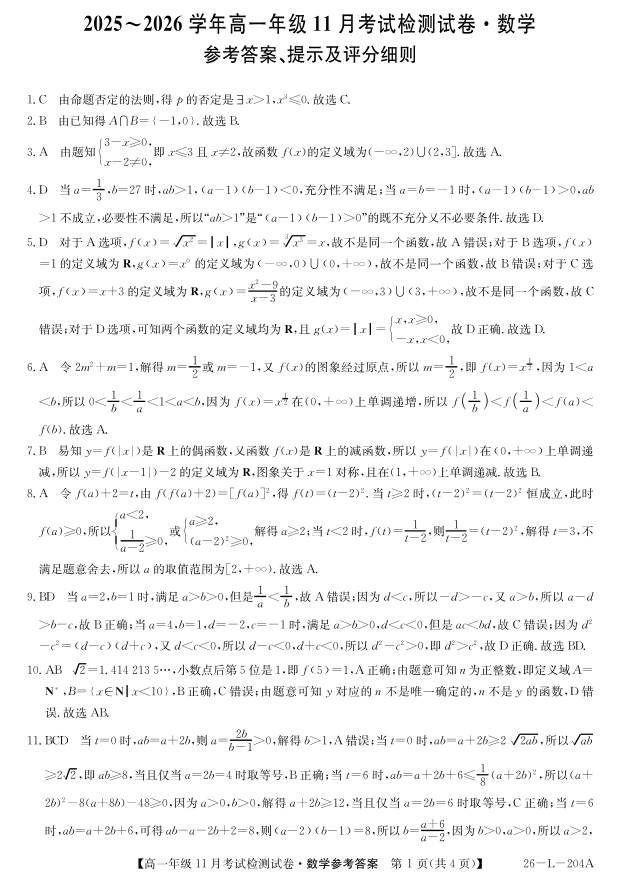 2025～2026 学年高一年级 11 月考试检测试卷·数学
参考答案、提示及评分细则
1. C 由命题否定的法则,得 p 的否定是∃x>1,x³≤0. 故选 C.
2. B 由已知得 A∩B={-1,0}. 故选 B.
3. A 由题知{3-x≥0, x-2≠0, 即 x≤3 且 x≠2,故函数 f(x)的定义域为(-∞,2)∪(2,3]. 故选 A.
4. D 当 a=1/3,b=27 时,ab>1,(a-1)(b-1)<0,充分性不满足;当 a=b=-1 时,(a-1)(b-1)>0,ab
>1 不成立,必要性不满足,所以“ab>1”是“(a-1)(b-1)>0”的既不充分又不必要条件. 故选 D.
5. D 对于 A 选项,f(x)=√x²=|x|,g(x)=∛x³=x,故不是同一个函数,故 A 错误;对于 B 选项,f(x)
=1 的定义域为 R,g(x)=x⁰ 的定义域为(-∞,0)∪(0,+∞),故不是同一个函数,故 B 错误;对于 C 选
项,f(x)=x+3 的定义域为 R,g(x)=(x²-9)/(x-3)的定义域为(-∞,3)∪(3,+∞),故不是同一个函数,故 C
错误;对于 D 选项,可知两个函数的定义域均为 R,且 g(x)=|x|={x,x≥0, -x,x<0, 故 D 正确. 故选 D.
6. A 令 2m²+m=1,解得 m=1/2或 m=-1,又 f(x)的图象经过原点,所以 m=1/2,即 f(x)=x^(1/2),因为 1<a
<b,所以 0<1/b<1/a<1<a<b,因为 f(x)=x^(1/2)在(0,+∞)上单调递增,所以 f(1/b)<f(1/a)<f(a)<
f(b). 故选 A.
7. B 易知 y=f(|x|)是 R 上的偶函数,又函数 f(x)是 R 上的减函数,所以 y=f(|x|)在(0,+∞)上单调递
减,所以 y=f(|x-1|)-2 的定义域为 R,图象关于 x=1 对称,且在(1,+∞)上单调递减. 故选 B.
8. A 令 f(a)+2=t,由 f(f(a)+2)=[f(a)]²,得 f(t)=(t-2)². 当 t≥2 时,(t-2)²=(t-2)² 恒成立,此时
f(a)≥0,所以{a<2, 1/(a-2)≥0, 或{a≥2, (a-2)²≥0, 解得 a≥2;当 t<2 时,f(t)=1/(t-2),则1/(t-2)=(t-2)²,解得 t=3,不
满足题意舍去,所以 a 的取值范围为[2,+∞). 故选 A.
9. BD 当 a=2,b=1 时,满足 a>b>0,但是1/a<1/b,故 A 错误;因为 d<c,所以-d>-c,又 a>b,所以 a-d
>b-c,故 B 正确;当 a=4,b=1,d=-2,c=-1 时,满足 a>b>0,d<c<0,但是 ac<bd,故 C 错误;因为 d²
-c²=(d-c)(d+c),又 d<c<0,所以 d-c<0,d+c<0,所以 d²-c²>0,即 d²>c²,故 D 正确. 故选 BD.
10. AB √2=1.414 213 5…,小数点后第 5 位是 1,即 f(5)=1,A 正确;由题意可知 n 为正整数,即定义域 A=
N*,B={x∈N|x<10},B 正确,C 错误;由题意可知 y 对应的 n 不是唯一确定的,n 不是 y 的函数,D 错
误. 故选 AB.
11. BCD 当 t=0 时,ab=a+2b,则 a=2b/(b-1)>0,解得 b>1,A 错误;当 t=0 时,ab=a+2b≥2√2ab,所以√ab
≥2√2,即 ab≥8,当且仅当 a=2b=4 时取等号,B 正确;当 t=6 时,ab=a+2b+6≤1/8(a+2b)²,所以(a+
2b)²-8(a+8b)-48≥0,因为 a>0,b>0,解得 a+2b≥12,当且仅当 a=2b=6 时取等号,C 正确;当 t=6
时,ab=a+2b+6,可得 ab-a-2b+2=8,则(a-2)(b-1)=8,所以 b=(a+6)/(a-2),因为 b>0,a>0,所以 a>2,
【高一年级 11 月考试检测试卷·数学参考答案 第 1 页(共 4 页)】 26-L-204A